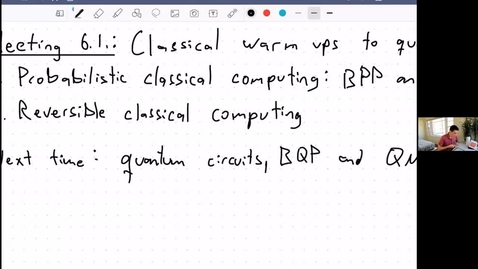 eeting 6.1.: Classical warm ups to qu
. Probabilistic classical computing: BPP an
. Reversible classical computing
ext time: quantum circuits, BQP and QM